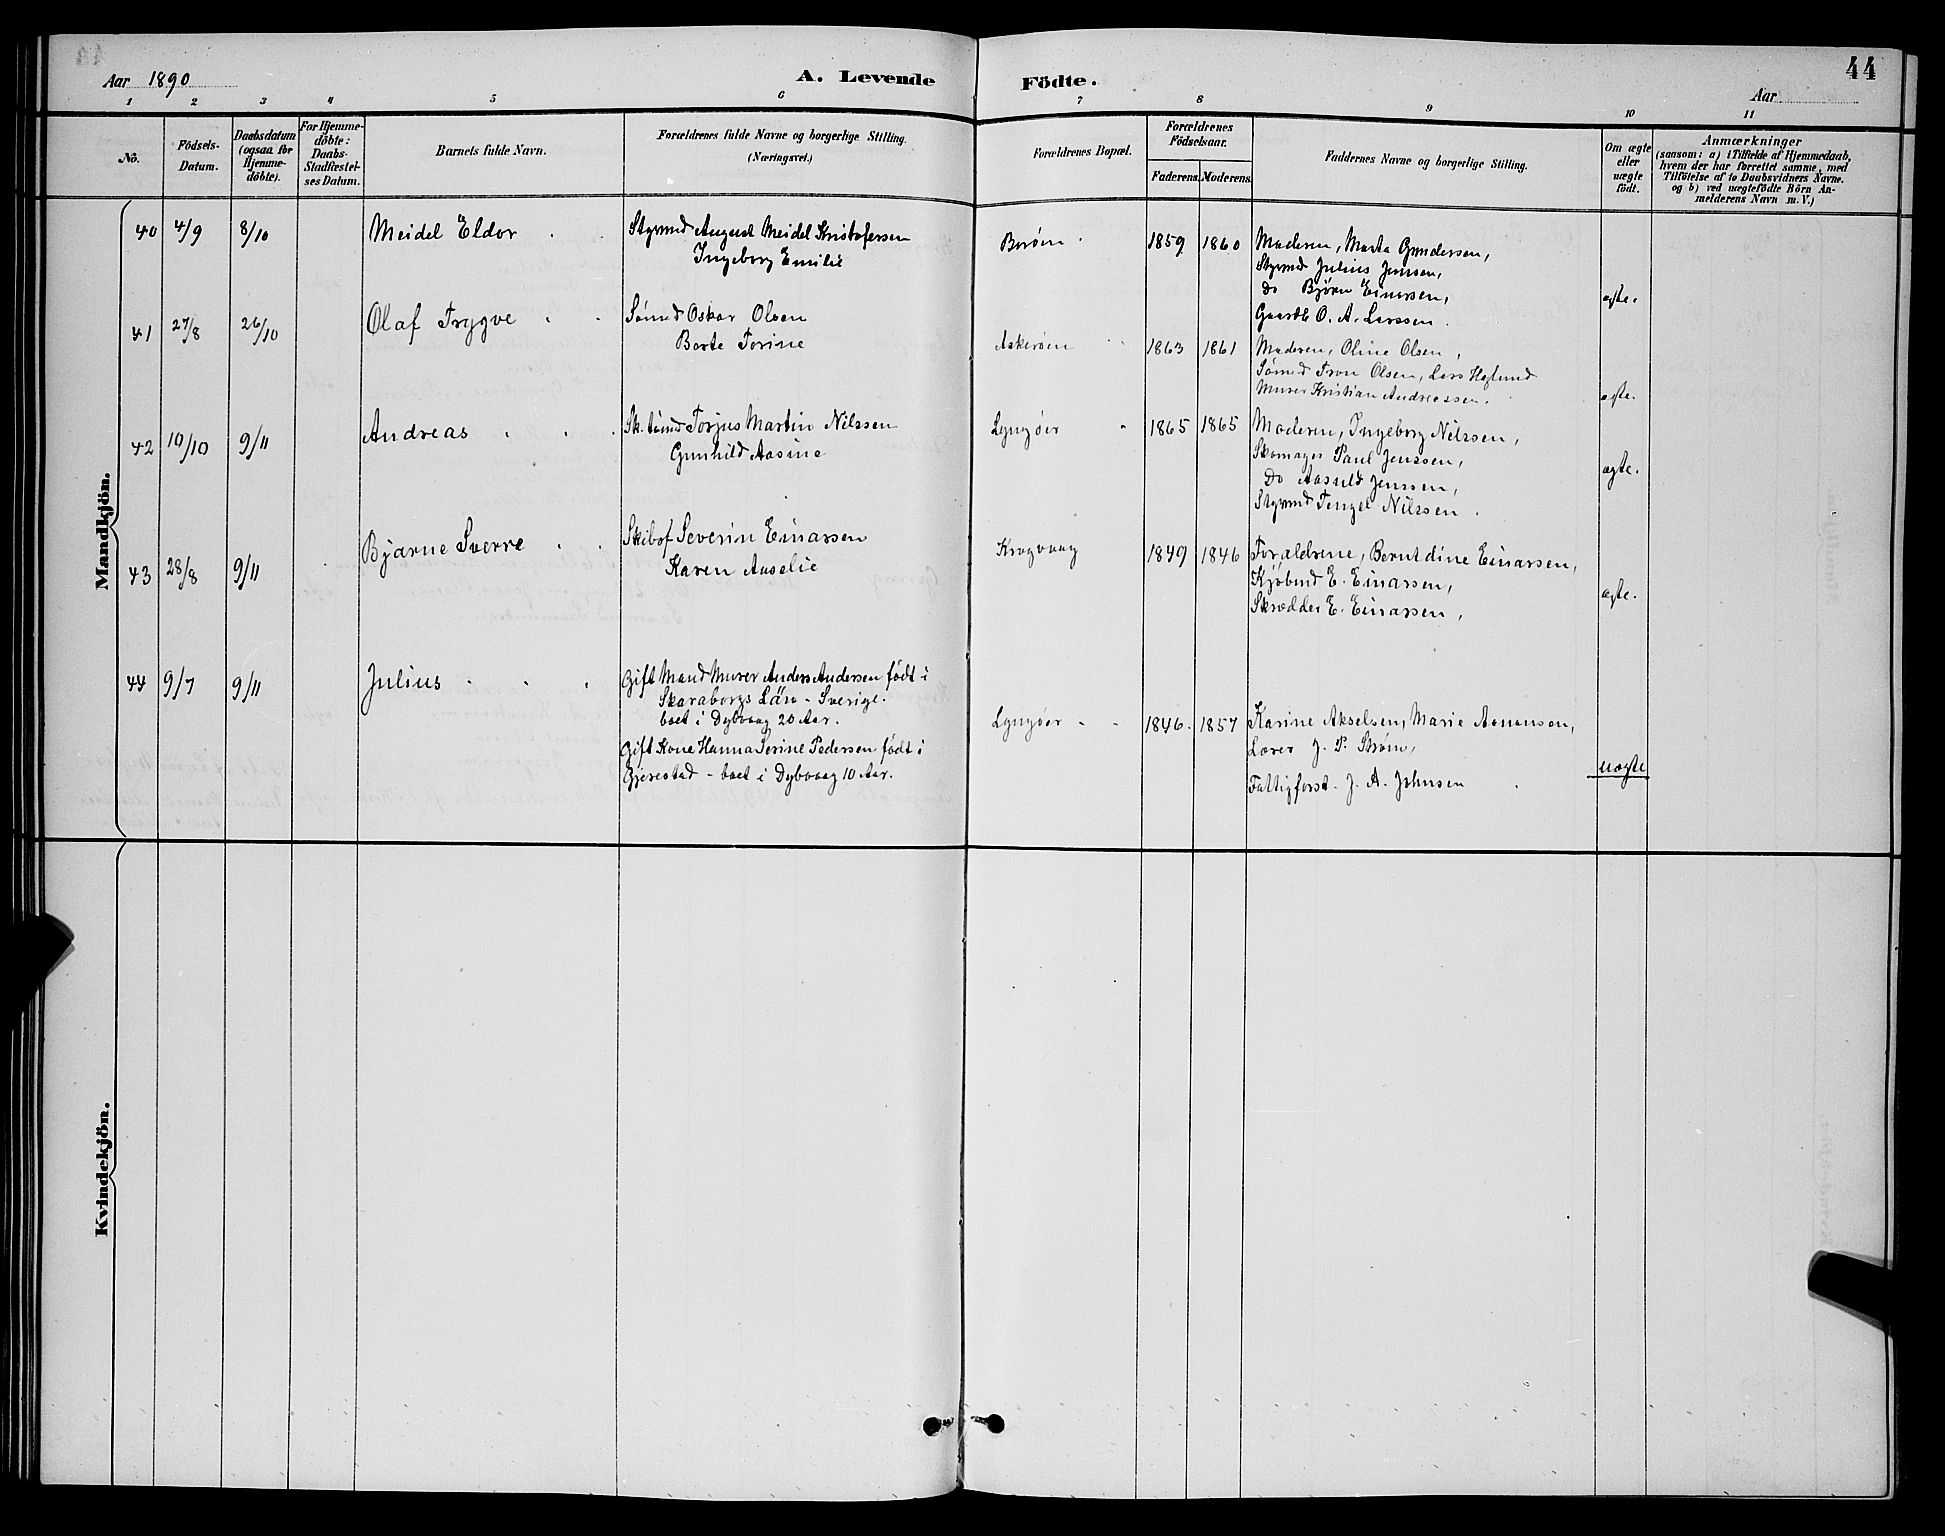 Aar 1890
A. Levende
Födte.
44
Aar
1 2 3 4 5 6 7 8 9 10 11
No.
Födsels-
Datum.
Daabsdatum
(ogsaa for
Hjemme-
döbte).
For Hjemme-
döbte:
Daabs-
Stadfæstel-
ses Datum.
Barnets fulde Navn.
Forældrenes fulde Navne og borgerlige Stilling.
(Næringsvei.)
Forældrenes Bopæl.
Forældrenes
Födselsaar.
Faderens. Moderens.
Faddernes Navne og borgerlige Stilling.
Om ægte
eller
uægte
födt.
Anmærkninger
(saasom: a) i Tilfælde af Hjemmedaab,
hvem der har forrettet samme, med
Tilföielse af to Daabsvidners Navne.
og b) ved uægtefödte Börn An-
melderens Navn m. V.)
Mandkjön.
40 4/9 8/10 Meidel Eldor
Styrmd August Meidel Kristofersen
Ingeborg Emilie
Borøen 1859 1860
Moderen, Marta Gundersen,
Styrmd Julius Jensen,
Do Bjørn Einersen,
Gaardb O. A. Larssen.
ægte.
41 27/8 26/10 Olaf Trygve
Sømd Oskar Olsen
Berte Torine
Askerøen 1863 1861
Moderen, Oline Olsen,
Sømd Tron Olsen, Lars Høglund
Murer Kristian Andreassen.
ægte.
42 10/10 9/11 Andreas
Sk.tømd Torjus Martin Nilssen
Gunhild Aasine
Lyngøer 1865 1865
Moderen, Ingeborg Nilssen,
Skomager Paul Jenssen,
Do Aasuld Jenssen,
Styrmd Tengel Nilssen.
ægte.
43 28/8 9/11 Bjarne Sverre
Skibsf Severin Einarsen
Karen Amelie
Krogvaag 1849 1846
Forældrene, Berntdine Einarsen,
Kjøbmd E. Einarsen,
Skrædder E. Einarsen,
ægte.
44 9/7 9/11 Julius
Gift Mand Murer Anders Andersen født i
Skaraborgs Län - Sverige.
boet i Dybvaag 20 Aar.
Gift Kone Hanna Serine Pedersen født i
Gjerestad - boet i Dybvaag 10 Aar.
Lyngøer 1846. 1857
Karine Akselsen, Marie Aanonsen,
Lærer J. P. Strøm,
Fattigforst. J. A. Johnsen
uægte
Kvindekjön.